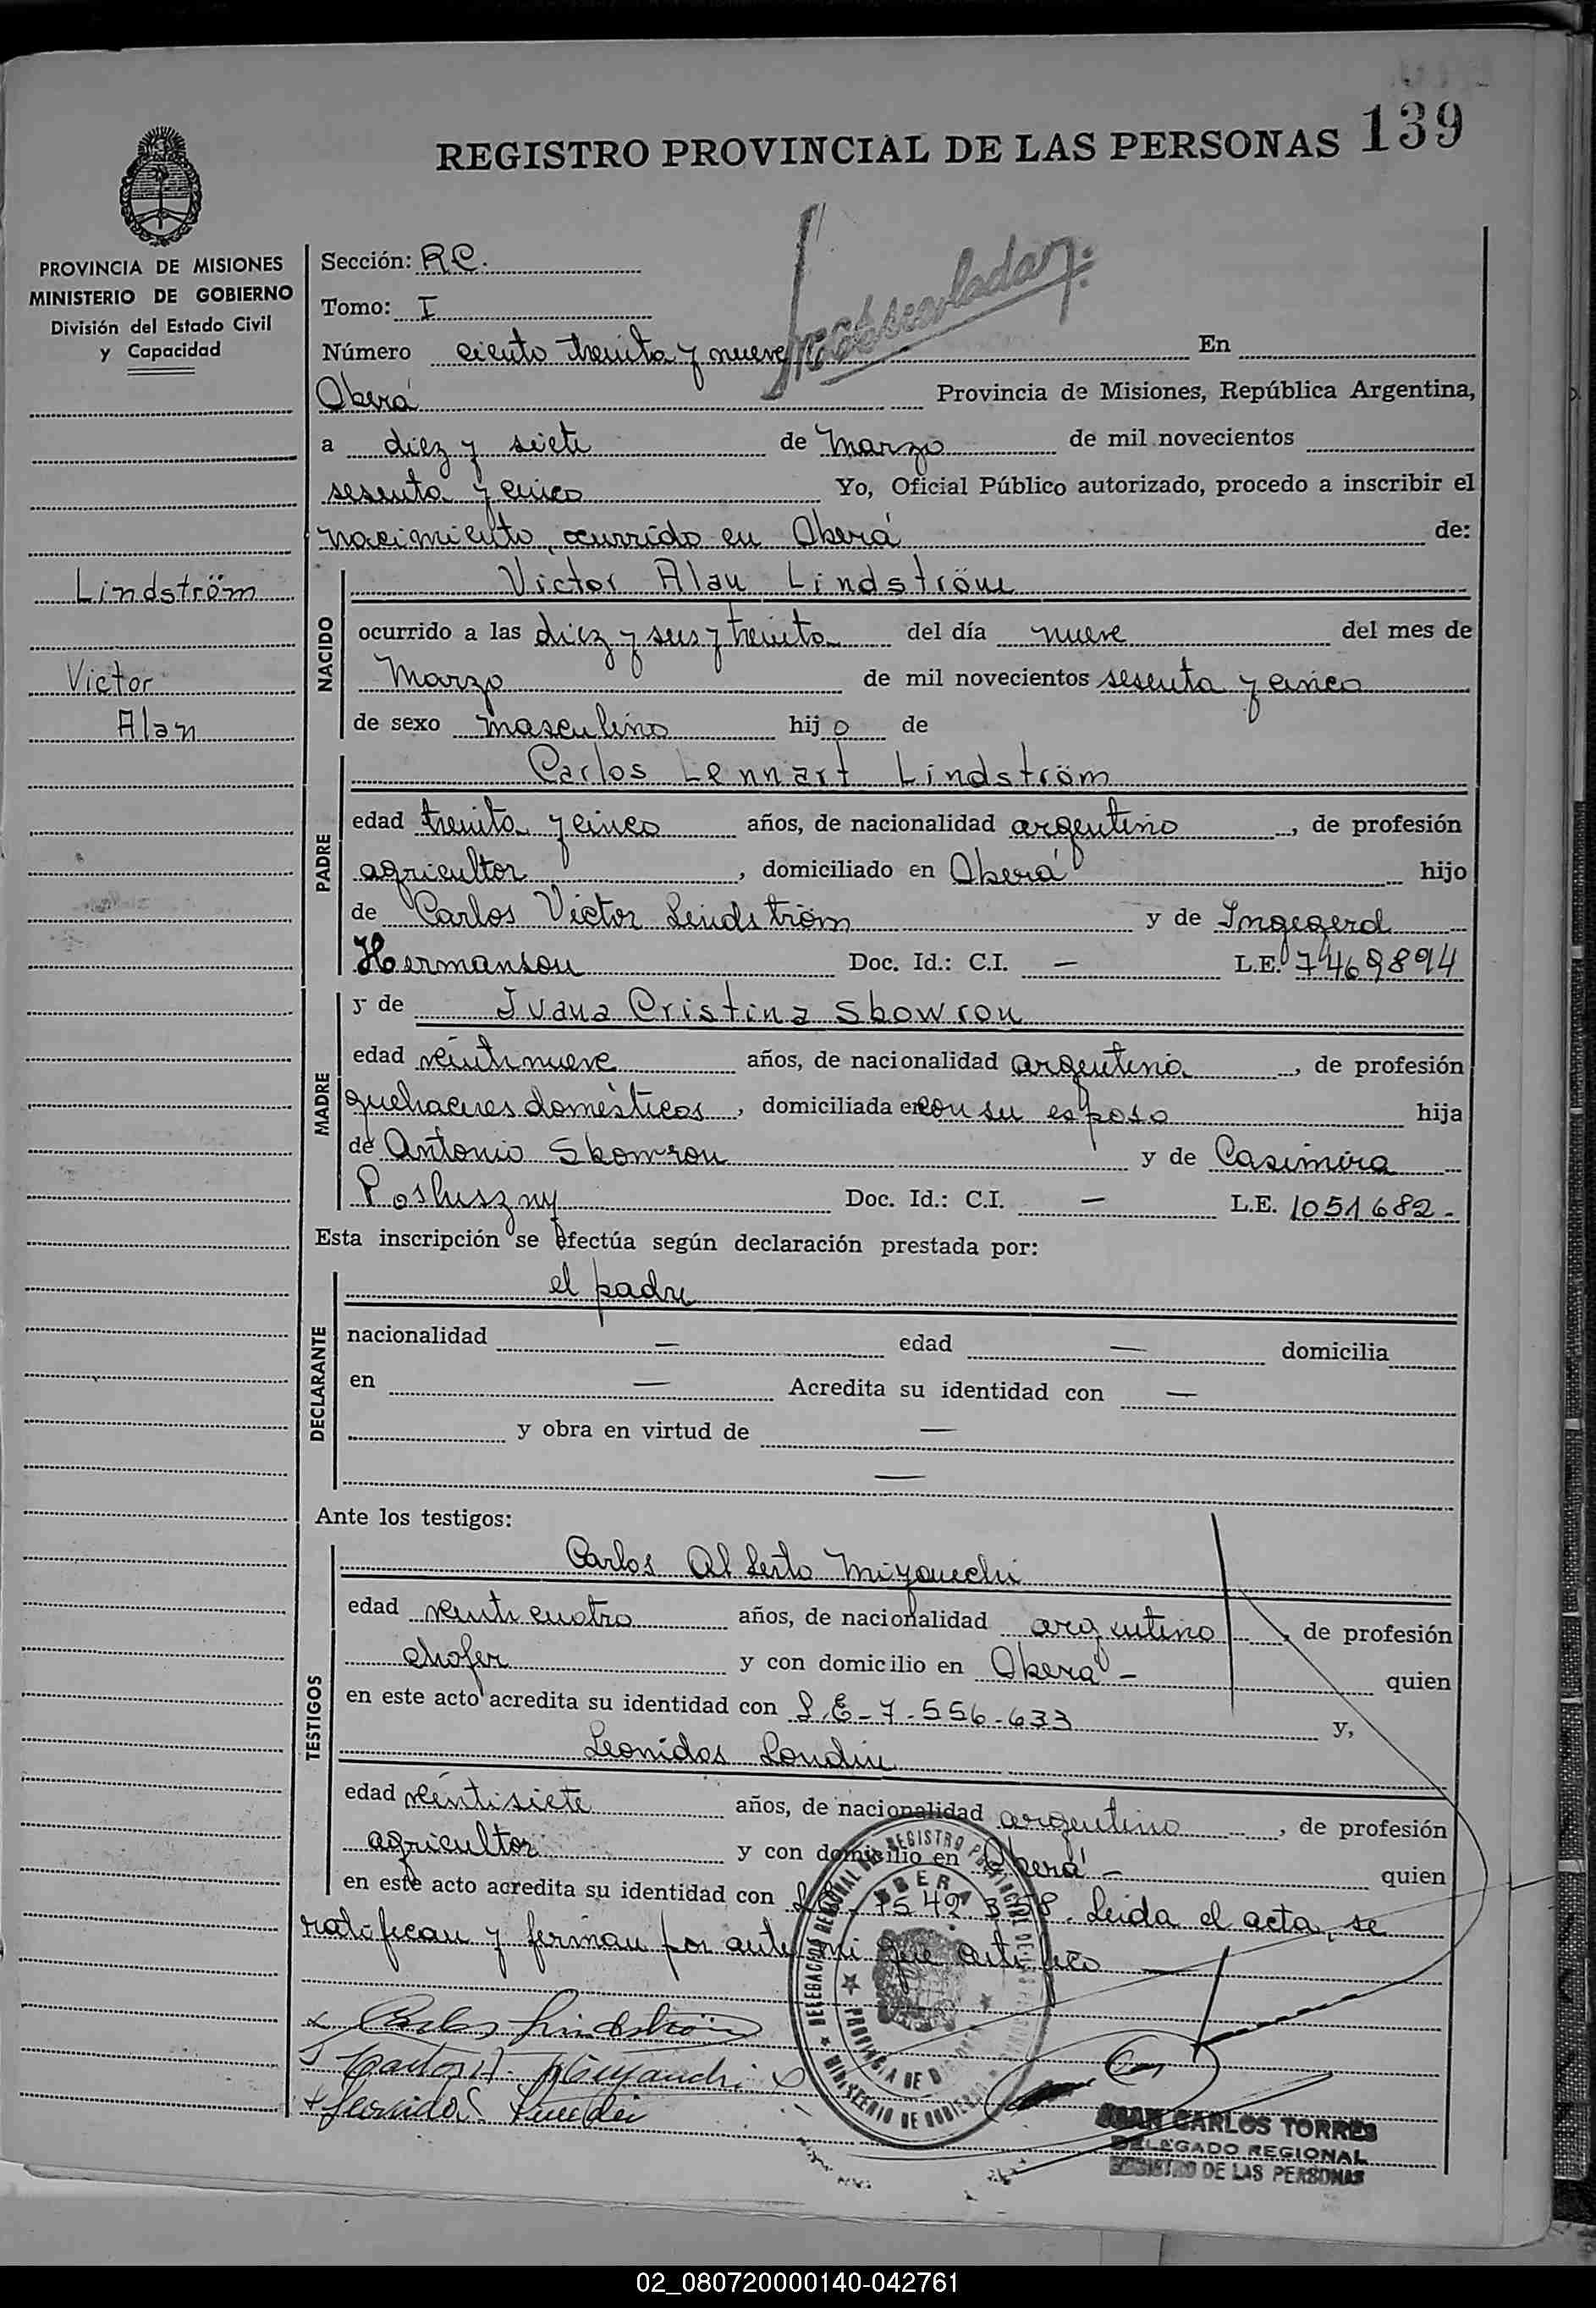 REGISTRO PROVINCIAL DE LAS PERSONAS 139
PROVINCIA DE MISIONES
MINISTERIO DE GOBIERNO
División del Estado Civil
y Capacidad
Lindström
Victor
Alan
Sección: R.C.
Tomo: I
Número ciento treinta y nueve En
Oberá Provincia de Misiones, República Argentina,
a diez y siete de Marzo de mil novecientos
sesenta y cinco Yo, Oficial Público autorizado, procedo a inscribir el
nacimiento, ocurrido en Oberá de:
NACIDO
Victor Alan Lindström
ocurrido a las diez y seis y treinta del día nueve del mes de
Marzo de mil novecientos sesenta y cinco
de sexo masculino hijo de
PADRE
Carlos Lennart Lindström
edad treinta y cinco años, de nacionalidad argentino, de profesión
agricultor, domiciliado en Oberá hijo
de Carlos Victor Lindström y de Ingegerd
Hermanson Doc. Id.: C.I. — L.E. 7469894
MADRE
y de Juana Cristina Skowron
edad veintinueve años, de nacionalidad argentina, de profesión
quehaceres domésticos, domiciliada en con su esposo hija
de Antonio Skowron y de Casimira
Posluszny Doc. Id.: C.I. — L.E. 1051682-
Esta inscripción se efectúa según declaración prestada por:
DECLARANTE
el padre
nacionalidad — edad — domicilia
en — Acredita su identidad con —
y obra en virtud de —
—
Ante los testigos:
TESTIGOS
Carlos Alberto
edad veinticuatro años, de nacionalidad argentino, de profesión
chofer y con domicilio en Oberá - quien
en este acto acredita su identidad con L.E-7-556-633 y,
Leonidas
edad veintisiete años, de nacionalidad argentino, de profesión
agricultor y con domicilio en Oberá - quien
en este acto acredita su identidad con Leida el acta, se
ratifican y firman por ante mi que certifico
Carlos Lindström
DELEGACION REGIONAL DE REGISTRO PROVINCIAL DE LAS
OBERA
PROVINCIA DE
MINISTERIO DE GOBIERNO
JUAN CARLOS TORRES
DELEGADO REGIONAL
REGISTRO DE LAS PERSONAS
02_080720000140-042761